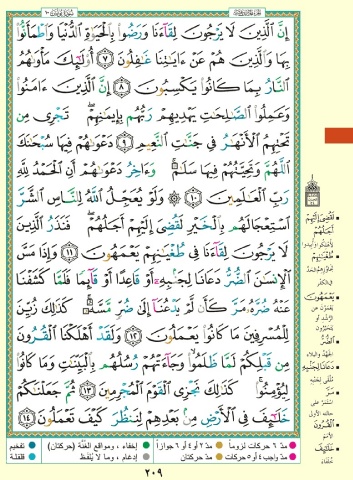 إِنَّ الَّذِينَ لَا يَرْجُونَ لِقَاءَنَا وَرَضُوا بِالْحَيَاةِ الدُّنْيَا وَاطْمَأَنُّوا
بِهَا وَالَّذِينَ هُمْ عَنْ ءَايَاتِنَا غَافِلُونَ ٧ أُولَٰئِكَ مَأْوَاهُمُ
النَّارُ بِمَا كَانُوا يَكْسِبُونَ ٨ إِنَّ الَّذِينَ ءَامَنُوا
وَعَمِلُوا الصَّالِحَاتِ يَهْدِيهِمْ رَبُّهُم بِإِيمَانِهِمْ تَجْرِي مِن
تَحْتِهِمُ الْأَنْهَارُ فِي جَنَّاتِ النَّعِيمِ ٩ دَعْوَاهُمْ فِيهَا سُبْحَانَكَ
اللَّهُمَّ وَتَحِيَّتُهُمْ فِيهَا سَلَامٌ وَءَاخِرُ دَعْوَاهُمْ أَنِ الْحَمْدُ لِلَّهِ
رَبِّ الْعَالَمِينَ ١٠ وَلَوْ يُعَجِّلُ اللَّهُ لِلنَّاسِ الشَّرَّ
اسْتِعْجَالَهُم بِالْخَيْرِ لَقُضِيَ إِلَيْهِمْ أَجَلُهُمْ فَنَذَرُ الَّذِينَ
لَا يَرْجُونَ لِقَاءَنَا فِي طُغْيَانِهِمْ يَعْمَهُونَ ١١ وَإِذَا مَسَّ
الْإِنسَانَ الضُّرُّ دَعَانَا لِجَنبِهِ أَوْ قَاعِدًا أَوْ قَائِمًا فَلَمَّا كَشَفْنَا
عَنْهُ ضُرَّهُ مَرَّ كَأَن لَّمْ يَدْعُنَا إِلَىٰ ضُرٍّ مَّسَّهُ كَذَٰلِكَ زُيِّنَ
لِلْمُسْرِفِينَ مَا كَانُوا يَعْمَلُونَ ١٢ وَلَقَدْ أَهْلَكْنَا الْقُرُونَ
مِن قَبْلِكُمْ لَمَّا ظَلَمُوا وَجَاءَتْهُمْ رُسُلُهُم بِالْبَيِّنَاتِ وَمَا كَانُوا
لِيُؤْمِنُوا كَذَٰلِكَ نَجْزِي الْقَوْمَ الْمُجْرِمِينَ ١٣ ثُمَّ جَعَلْنَاكُمْ
خَلَائِفَ فِي الْأَرْضِ مِن بَعْدِهِمْ لِنَنظُرَ كَيْفَ تَعْمَلُونَ ١٤
لَقُضِيَ إِلَيْهِمْ
أَجَلُهُمْ
طُغْيَانِهِمْ
يَعْمَهُونَ
الضُّرُّ
دَعَانَا لِجَنبِهِ
مَرَّ
الْقُرُونَ
الأمم
خَلَائِفَ
خلفاء
مدّ ٦ حركات لزوماً مدّ ٢ أو ٤ أو ٦ جوازاً إخفاء، ومواقع الغنّة (حركتان) تفخيم
مدّ واجب ٤ أو ٥ حركات مدّ حركتان إدغام، وما لا يُلفظ قلقلة
٢٠٩